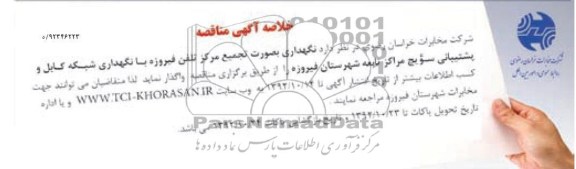 خلاصه آگهی مناقصه
۵/۹۲۳۲۶۲۲۳
شرکت مخابرات خراسان رضوی در نظر دارد نگهداری بصورت تجمیع مرکز تلفن فیروزه با نگهداری شبکه کابل و
پشتیبانی سوئیچ مراکز تابعه شهرستان فیروزه را از طریق برگزاری مناقصه واگذار نماید. لذا متقاضیان می توانند جهت
کسب اطلاعات بیشتر از تاریخ انتشار آگهی تا به وب سایت WWW.TCI-KHORASAN.IR و یا اداره
مخابرات شهرستان فیروزه مراجعه نمایند.
تاریخ تحویل پاکات تا ۱۳۹۲/۱۰/۲۳ و می باشد.
ParsNamadData
مرکز فرآوری اطلاعات پارس نماد داده ها
شرکت مخابرات خراسان رضوی